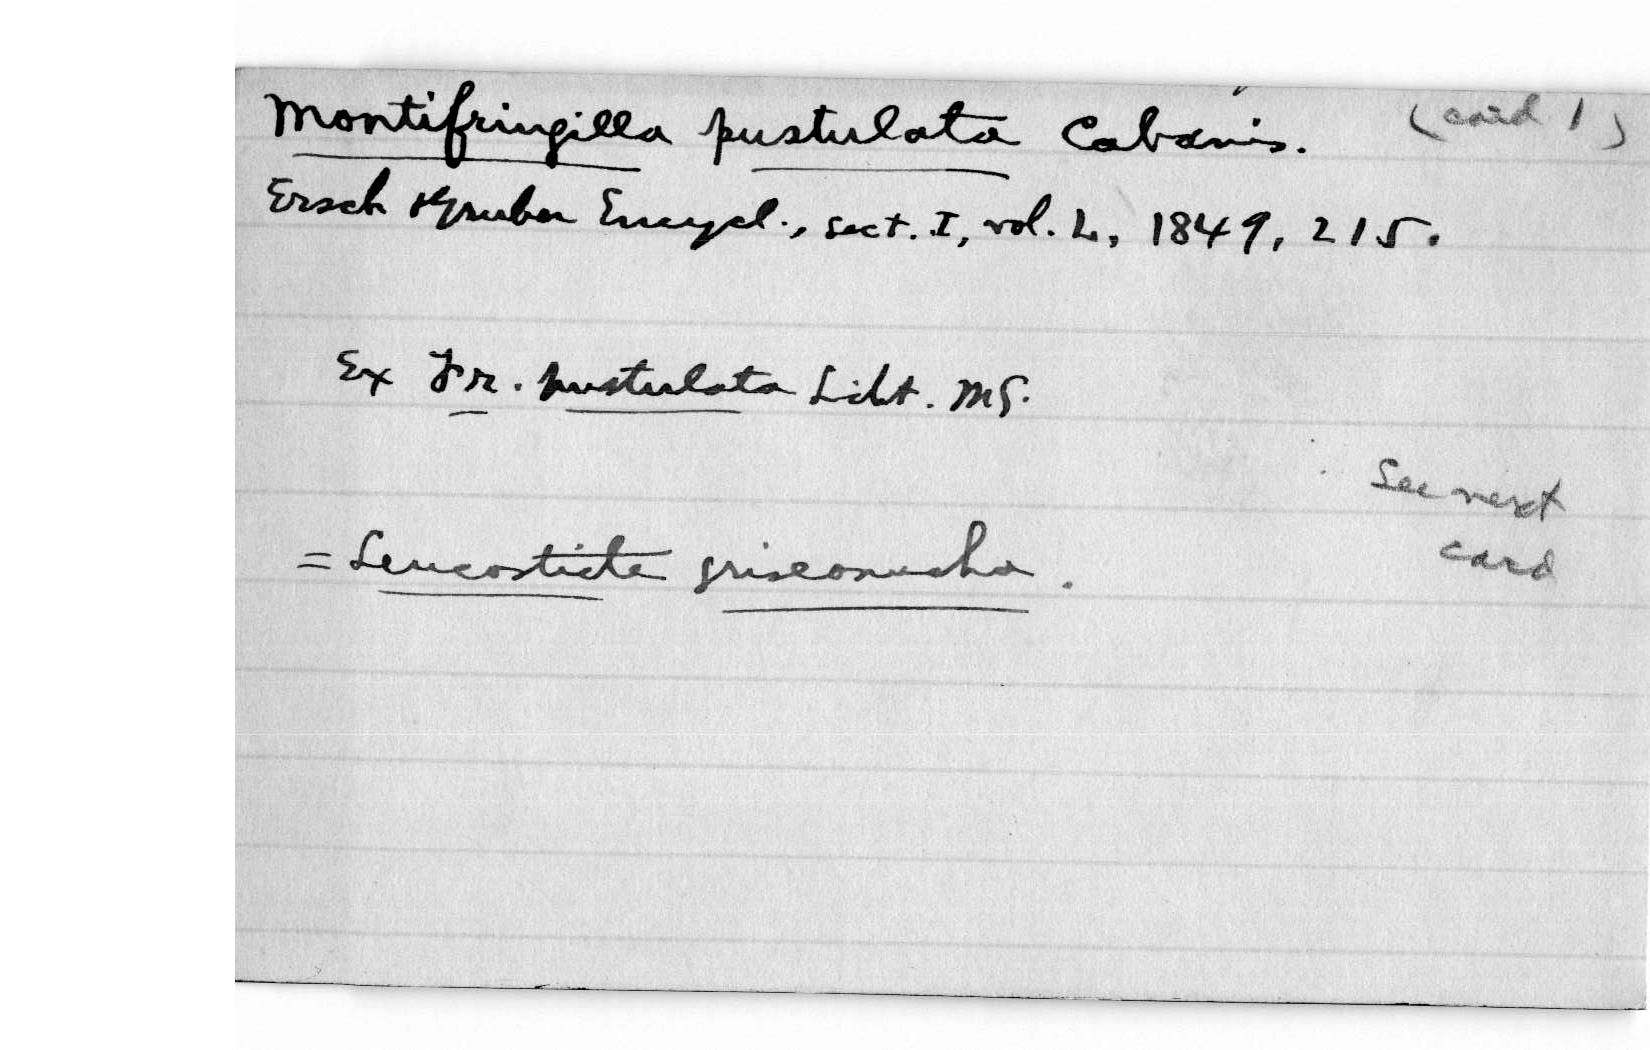 Montifringilla pustulata Cabanis. (card 1)
Ersch & Gruber Encycl., sect. I, vol. L, 1849, 215.
Ex Fr. pustulata Licht. MS.
See next
card
= Leucosticte griseonucha.